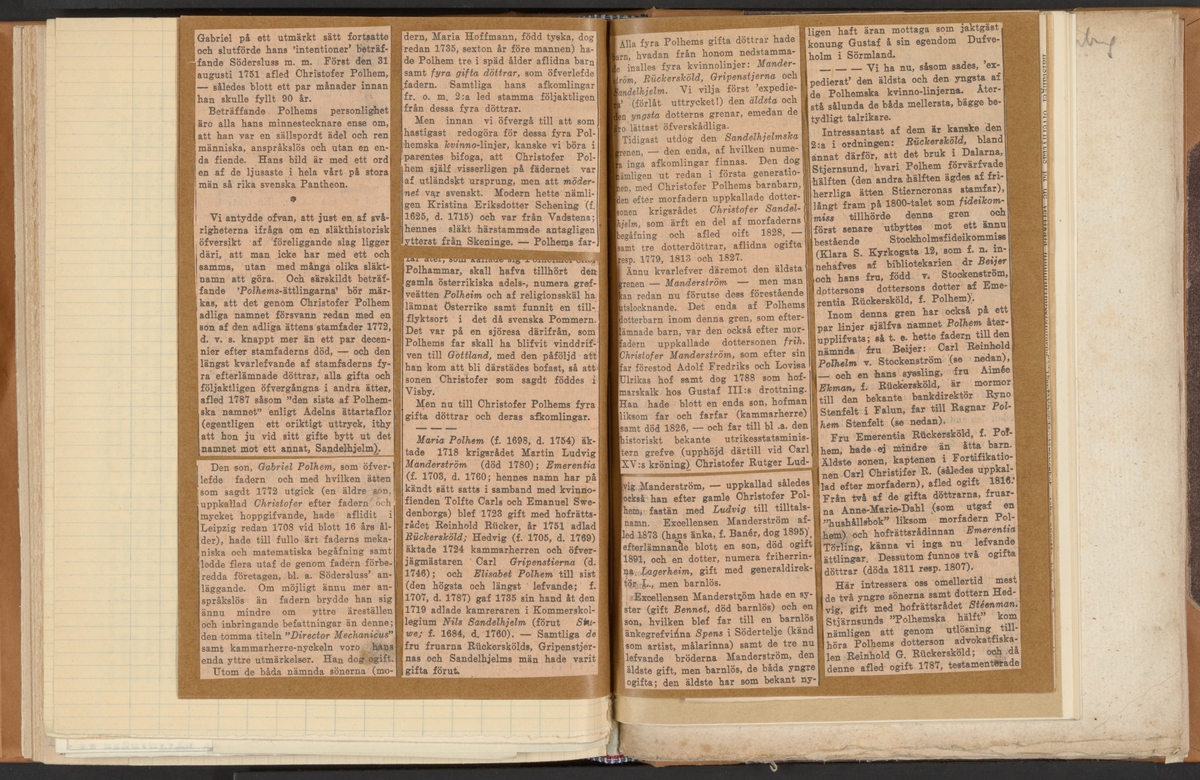 Gabriel på ett utmärkt sätt fortsatte
och slutförde hans 'intentioner' beträf-
fande Södersluss m. m. Först den 31
augusti 1751 afled Christofer Polhem,
— således blott ett par månader innan
han skulle fyllt 90 år.
Beträffande Polhems personlighet
äro alla hans minnestecknare ense om,
att han var en sällspordt ädel och ren
människa, anspråkslös och utan en en-
da fiende. Hans bild är med ett ord
en af de ljusaste i hela vårt på stora
män så rika svenska Pantheon.
*
Vi antydde ofvan, att just en af svå-
righeterna ifråga om en släkthistorisk
öfversikt af föreliggande slag ligger
däri, att man icke har med ett och
samma, utan med många olika släkt-
namn att göra. Och särskildt beträf-
fande 'Polhems-ättlingarna' bör mär-
kas, att det genom Christofer Polhem
adliga namnet försvann redan med en
son af den adliga ättens stamfader 1772,
d. v. s. knappt mer än ett par decen-
nier efter stamfaderns död, — och den
längst kvarlefvande af stamfaderns fy-
ra efterlämnade döttrar, alla gifta och
följaktligen öfvergångna i andra ätter,
afled 1787 såsom "den sista af Polhem-
ska namnet" enligt Adelns ättartaflor
(egentligen ett oriktigt uttryck, ithy
att hon ju vid sitt gifte bytt ut det
namnet mot ett annat, Sandelhjelm).
Den son, Gabriel Polhem, som öfver-
lefde fadern och med hvilken ätten
som sagdt 1772 utgick (en äldre son,
uppkallad Christofer efter fadern och
mycket hoppgifvande, hade aflidit i
Leipzig redan 1708 vid blott 16 års ål-
der), hade till fullo ärt faderns meka-
niska och matematiska begåfning samt
ledde flera utaf de genom fadern förbe-
redda företagen, bl. a. Södersluss' an-
läggande. Om möjligt ännu mer an-
språkslös än fadern brydde han sig
ännu mindre om yttre äreställen
och inbringande befattningar än denne;
den tomma titeln "Director Mechanicus"
samt kammarherre-nyckeln voro hans
enda yttre utmärkelser. Han dog ogift.
Utom de båda nämnda sönerna (mo-
dern, Maria Hoffmann, född tyska, dog
redan 1735, sexton år före mannen) ha-
de Polhem tre i späd ålder aflidna barn
samt fyra gifta döttrar, som öfverlefde
fadern. Samtliga hans afkomlingar
fr. o. m. 2:a led stamma följaktligen
från dessa fyra döttrar.
Men innan vi öfvergå till att som
hastigast redogöra för dessa fyra Pol-
hemska kvinno-linjer, kanske vi böra i
parentes bifoga, att Christofer Pol-
hem själf visserligen på fädernet var
af utländskt ursprung, men att möder-
net var svenskt. Modern hette nämli-
gen Kristina Eriksdotter Schening (f.
1625, d. 1715) och var från Vadstena;
hennes släkt härstammade antagligen
ytterst från Skeninge. — Polhems far-
Polhammar, skall hafva tillhört den
gamla österrikiska adels-, numera gref-
veätten Polheim och af religionsskäl ha
lämnat Österrike samt funnit en till-
flyktsort i det då svenska Pommern.
Det var på en sjöresa därifrån, som
Polhems far skall ha blifvit vinddrif-
ven till Gottland, med den påföljd att
han kom att bli därstädes bofast, så att
sonen Christofer som sagdt föddes i
Visby.
Men nu till Christofer Polhems fyra
gifta döttrar och deras afkomlingar.
— — —
Maria Polhem (f. 1698, d. 1754) äk-
tade 1718 krigsrådet Martin Ludvig
Manderström (död 1780); Emerentia
(f. 1703, d. 1760; hennes namn har på
kändt sätt satts i samband med kvinno-
fienden Tolfte Carls och Emanuel Swe-
denborgs) blef 1723 gift med hofrätts-
rådet Reinhold Rücker, år 1751 adlad
Rückersköld; Hedvig (f. 1705, d. 1769)
äktade 1724 kammarherren och öfver-
jägmästaren Carl Gripenstierna (d.
1746); och Elisabet Polhem till sist
(den högsta och längst lefvande; f.
1707, d. 1787) gaf 1735 sin hand åt den
1719 adlade kamreraren i Kommerskol-
legium Nils Sandelhjelm (förut
f. 1684, d. 1760). — Samtliga de
fru fruarna Rückerskölds, Gripenstjer-
nas och Sandelhjelms män hade varit
gifta förut.
Alla fyra Polhems gifta döttrar hade
barn, hvadan från honom nedstamma-
de inalles fyra kvinnolinjer: Mander-
ström, Rückersköld, Gripenstjerna och
Sandelhjelm. Vi vilja först 'expedie-
ra' (förlåt uttrycket!) den äldsta och
den yngsta dotterns grenar, emedan de
äro lättast öfverskådliga.
Tidigast utdog den Sandelhjelmska
grenen, — den enda, af hvilken nume-
ra inga afkomlingar finnas. Den dog
nämligen ut redan i första generatio-
nen, med Christofer Polhems barnbarn,
den efter morfadern uppkallade dotter-
sonen krigsrådet Christofer Sandel-
hjelm, som ärft en del af morfaderns
begåfning och afled oift 1828, —
samt tre dotterdöttrar, aflidna ogifta
resp. 1779, 1813 och 1827.
Ännu kvarlefver däremot den äldsta
grenen — Manderström — men man
kan redan nu förutse dess förestående
utslocknande. Det enda af Polhems
dotterbarn inom denna gren, som efter-
lämnade barn, var den också efter mor-
fadern uppkallade dottersonen frih.
Christofer Manderström, som efter sin
far förestod Adolf Fredriks och Lovisa
Ulrikas hof samt dog 1788 som hof-
marskalk hos Gustaf III:s drottning.
Han hade blott en enda son, hofman
liksom far och farfar (kammarherre)
samt död 1826, — och far till bl .a. den
historiskt bekante utrikesstatsminis-
tern grefve (upphöjd därtill vid Carl
XV:s kröning) Christofer Rutger Lud-
vig Manderström, — uppkallad således
också han efter gamle Christofer Pol-
hem, fastän med Ludvig till tilltals-
namn. Excellensen Manderström af-
led 1873 (hans änka, f. Banér, dog 1895)
efterlämnande blott en son, död ogift
1891, och en dotter, numera friherrin-
na Lagerheim, gift med generaldirek-
tör L., men barnlös.
Excellensen Manderström hade en sy-
ster (gift Bennet, död barnlös) och en
son, hvilken blef far till en barnlös
änkegrefvinna Spens i Södertelje (känd
som artist, målarinna) samt de tre nu
lefvande bröderna Manderström, den
äldste gift, men barnlös, de båda yngre
ogifta; den äldste har som bekant ny-
ligen haft äran mottaga som jaktgäst
konung Gustaf å sin egendom Dufve-
holm i Sörmland.
— — — Vi ha nu, såsom sades, 'ex-
pedierat' den äldsta och den yngsta af
de Polhemska kvinno-linjerna. Åter-
stå sålunda de båda mellersta, bägge be-
tydligt talrikare.
Intressantast af dem är kanske den
2:a i ordningen: Rückersköld, bland
annat därför, att det bruk i Dalarna,
Stjernsund, hvari Polhem förvärfvade
hälften (den andra hälften ägdes af fri-
herrliga ätten Stierncronas stamfar),
långt fram på 1800-talet som fideikom-
miss tillhörde denna gren och
först senare utbyttes mot ett ännu
bestående Stockholmsfideikommiss
(Klara S. Kyrkogata 12, som f. n. in-
nehafves af bibliotekarien dr Beijer
och hans fru, född v. Stockenström,
dottersons dottersons dotter af Eme-
rentia Rückersköld, f. Polhem).
Inom denna gren har också på ett
par linjer själfva namnet Polhem åter-
upplifvats; så t. e. hette fadern till den
nämnda fru Beijer: Carl Reinhold
Polhelm v. Stockenström (se nedan),
— och en hans syssling, fru Aimée
Ekman, f. Rückersköld, är mormor
till den bekante bankdirektör Ryno
Stenfelt i Falun, far till Ragnar Pol-
hem Stenfelt (se nedan).
Fru Emerentia Rückersköld, f. Pol-
hem, hade ej mindre än åtta barn.
Äldste sonen, kaptenen i Fortifikatio-
nen Carl Christifer R. (således uppkal-
lad efter morfadern), afled ogift 1816.
Från två af de gifta döttrarna, fruar-
na Anne-Marie-Dahl (som utgaf en
"hushållsbok" liksom morfadern Pol-
hem) och hofrättsrådinnan Emerentia
Törling, känna vi inga nu lefvande
ättlingar. Dessutom funnos två ogifta
döttrar (döda 1811 resp. 1807).
Här intressera oss omellertid mest
de två yngre sönerna samt dottern Hed-
vig, gift med hofrättsrådet Stéenman.
Stjärnsunds "Polhemska hälft" kom
nämligen att genom utlösning till-
höra Polhems dotterson advokatfiska-
len Reinhold G. Rückersköld; och då
denne afled ogift 1787, testamenterade